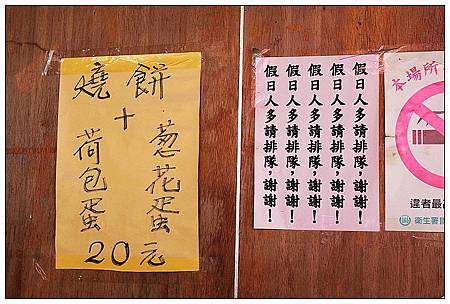 燒餅
+
蔥花蛋
荷包蛋
20元
假日人多請排隊,謝謝!
假日人多請排隊,謝謝!
假日人多請排隊,謝謝!
假日人多請排隊,謝謝!
假日人多請排隊,謝謝!
本場所
違者最高
衛生署